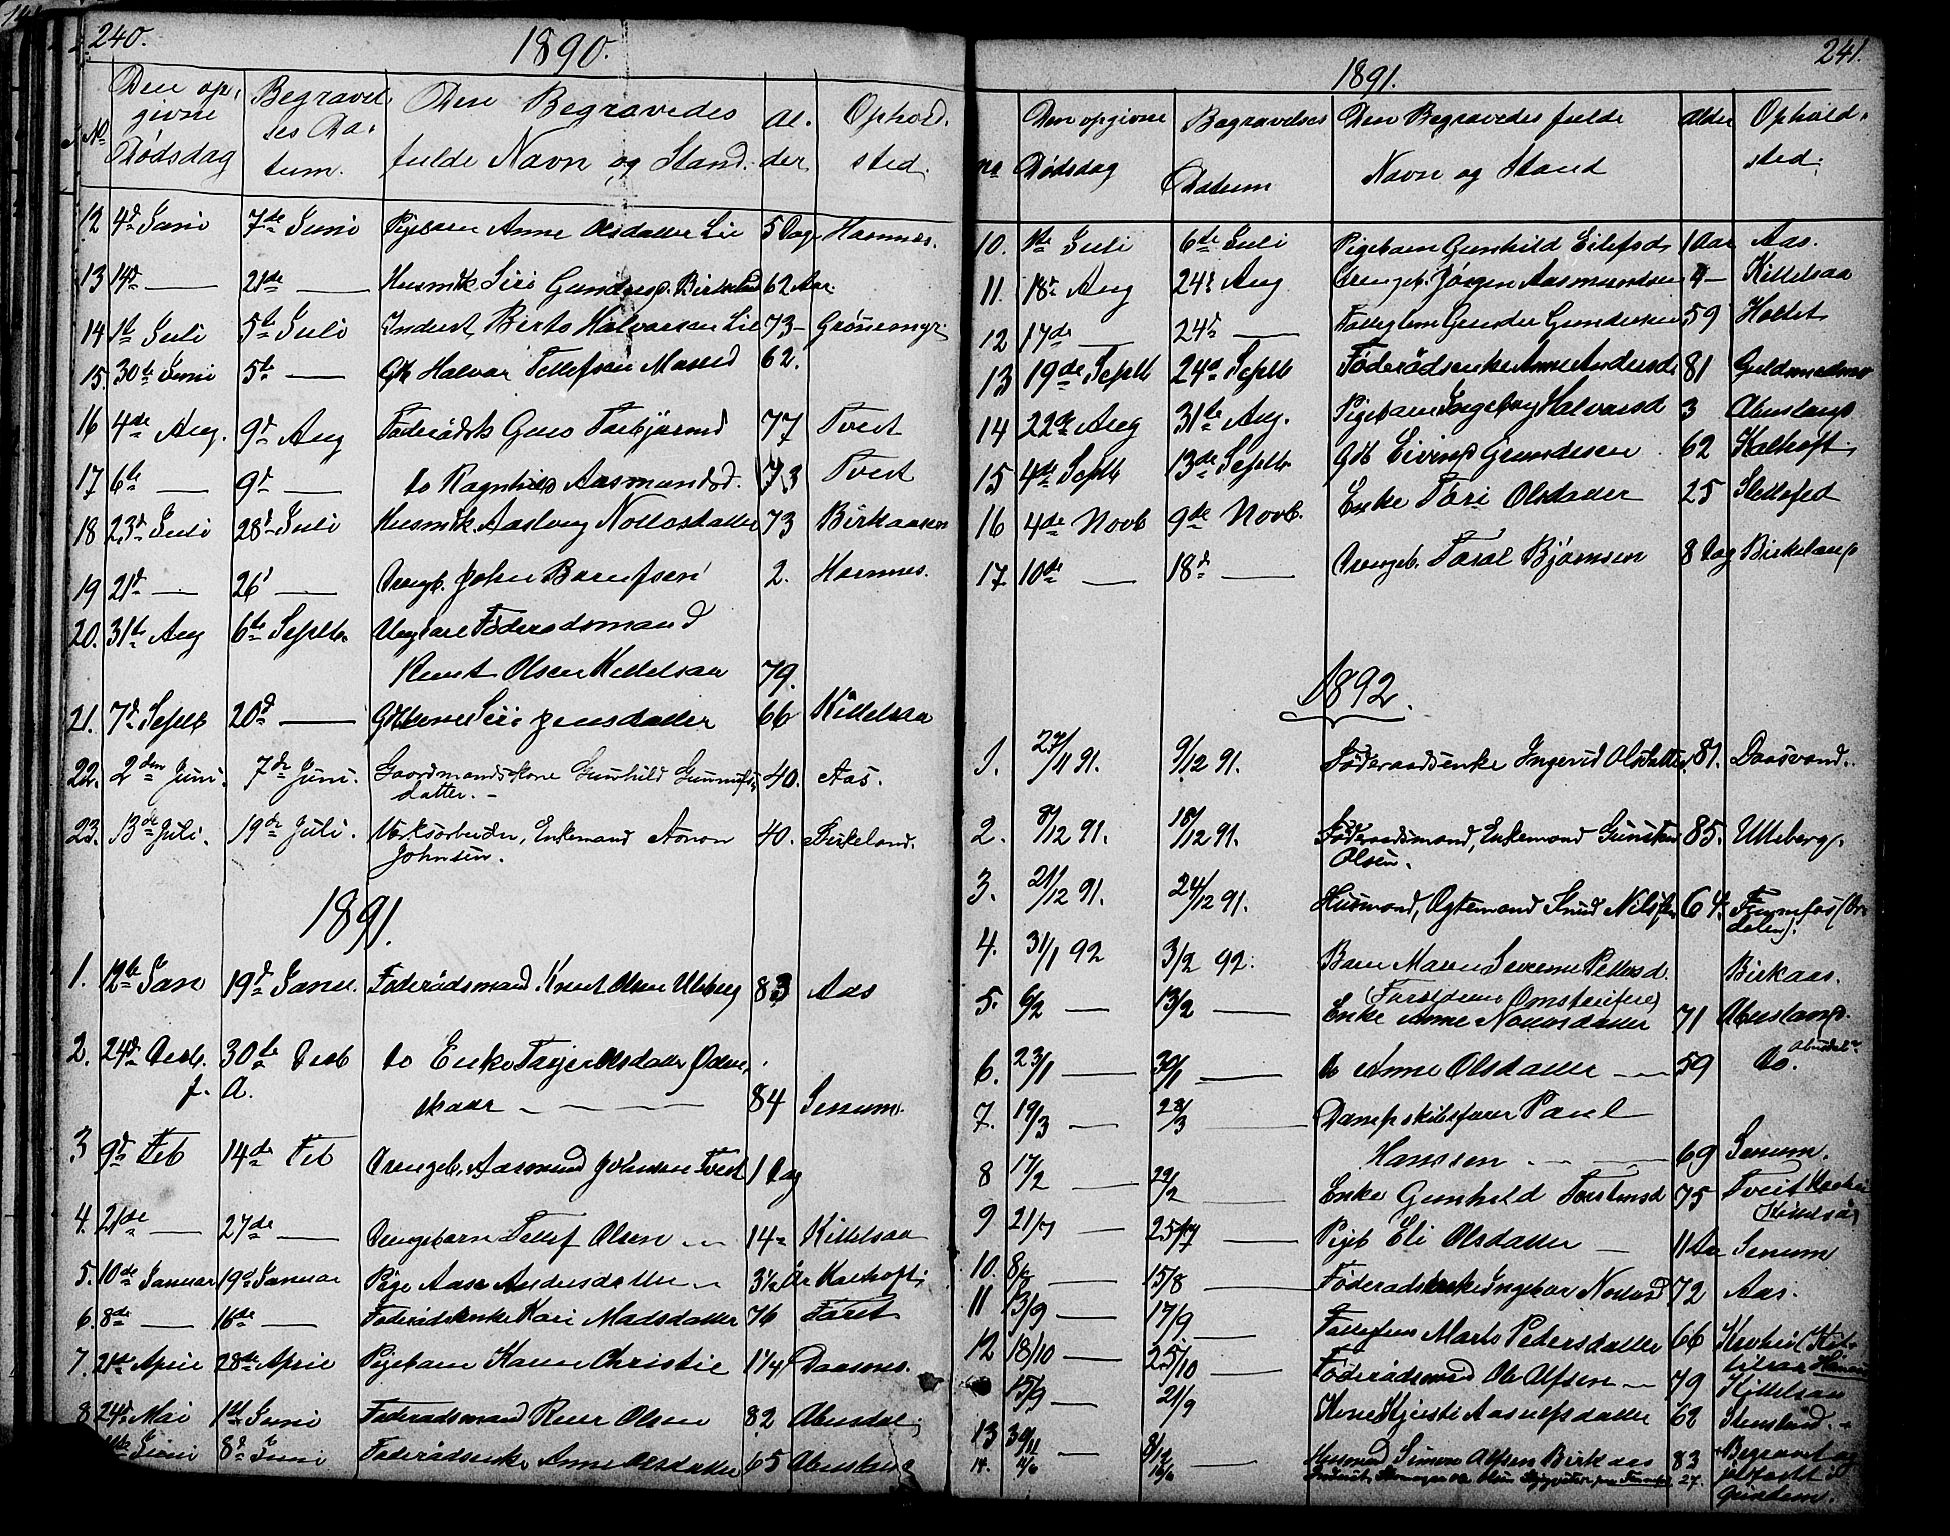 240.
1890.
No
Den op-
givne
Dødsdag
Begravel
ses Da-
tum.
Den Begravedes
fulde Navn og Stand.
Al-
der
Ophold.
sted.
12 4d Juni 7de Juni Pigebarn Anne Olsdatter Lie 5 Dag Hornnes.
13 14d — 21de — Husmk Siri Gundersd. Birkeland 62 Aar.
14 1st Juli 5te Juli Inderst Birte Halvorsen Lie 73 — Grönemyr
15. 30te Juni 5te — Gk Halvor Tellefsen Moseid 62.
16 4de Aug. 9d Aug Föderådsk Guro Torbjørnsd 77 Tveit
17 6te — 9d — do Ragnhild Aasmundsd. 73 Tveit
18 23d Juli 28d Juli Husmk. Aaslaug Nottosdatter 73 Birkaasen
19 21d — 26d — Drengb. John Barufsen 2. Hornnes.
20. 31te Aug 6te Septbr. Ungkarl Föderadsmand
Knut Olsen Kittelsaa 79.
21. 7d Septb 20d — Gdkone Siri Jensdatter 66 Kittelsaa
22. 2den Juni. 7de Juni. Gaardmandskone Gunhild Gunnufs-
datter. — 40. Aas.
23. 13de Juli. 19de Juli. Værksarbeider, Enkemand Aanon
Johnsen. 40. Birkeland.
1891.
1. 12te Jan 19d Janu. Föderådsmand. Knut Olsen Uleberg 83 Aas
2. 24d Decb. 30te Decb do Enke Tarjer Olsdatter Öden-
f. A.
skaar — 84 Senum.
3 9d Feb 14de Feb Drengeb. Aasmund Johnsen Tveit 1 Dag
4. 21de — 27de — Drengebarn Tellef Olsen — 14 — Kittelsaa
5. 10de Januar 19d Januar Pige Aase Andersdatter — 3½ År Kalhoft
6. 8de — 16de — Föderådsenke Kari Madsdatter 76 Faret
7. 21de April 28de April Pigebarn Karen Christie 1¼ Daasnes.
8. 24de Mai 1st Juni Föderadsmand Reier Olsen 82 Abusdal
Juni 8d Juni Föderådsenke Anne Olsdatter 65 Abusland
241.
1891.
no
Den opgivne
Dødsdag
Begravelses
Datum
Den Begravedes fulde
Navn og Stand
Alder
Ophold-
sted.
10. 1ste Juli 6te Juli Pigebarn Gunhild Eilefsd 1 Aar Aas.
11. 18d Aug 24d Aug Drengeb. Jörgen Aasmundsen 4 — Kittelsaa
12 17de — 24d — Fattiglem Gunder Gundersen 59 Holtet
13 19de Septb 24d Septb Föderådsenke Anne Andersd 81 Guldsmedmo
14 22de Aug 31te Aug. Pigebarn Ingeborg Halvorsd 3 Abusland
15 4de Septb 13de Septbr Gdb Eivind Gundesen 62 Kalhoft
16 4de Novb 9de Novb. Enke Tori Olsdatter 25 Slettefed
17 10de — 18d — Drengeb. Taral Bjørnsen 8 Dag Birkeland
1892.
1. 27/11 91. 9/12 91. Föderaadsenke Ingerid Olsdatter. 81. Daasvand.
2. 8/12 91. 18/12 91. Föderaadsmand, Enkemand Gunsten
Olsen. 85. Uleberg.
3. 21/12 91. 24/12 91. Husmand, Ægtemand Knud Nilssen 64. Fennefos (Ho-
delen).
4. 31/1 92 3/2 92. Barn Maren Severine Pettersd. Birkaas.
5. 6/2 — 13/2 — (Forældrene Omstreifere)
Enke Anne Nottosdatter 71 Abusland.
6. 23/1 — 30/1 — do Anne Olsdatter — 59 do. Abusdal
7. 19/3 — 28/3 — Dampskibsfører Paul
Hanssen — 69 Senum.
8 17/2 — 22/2 — Enke Gunhild Torstensd 75 Tveit
(Kittelså)
9 21/7 — 25/7 — Pigeb Eli Olsdatter — 11 Aar Senum
10. 8/8 — 15/8 — Föderadsenke Ingebor Nottosd 72 Aas.
11 13/9 — 17/9 — Fattiglem Marte Pedersdatter 66
12 18/10 — 25/10 — Föderådsmand Ole Alfsen — 79 Kittelsaa
15/9 — 21/9 Kone Kjersti Aasulfsdatter 62 Stensland.
13 30/11 — 8/12 Husmand Simon Alfsen Birkaas 83 Begravet og
14. 4/6 16/6 27. jordfæstet i